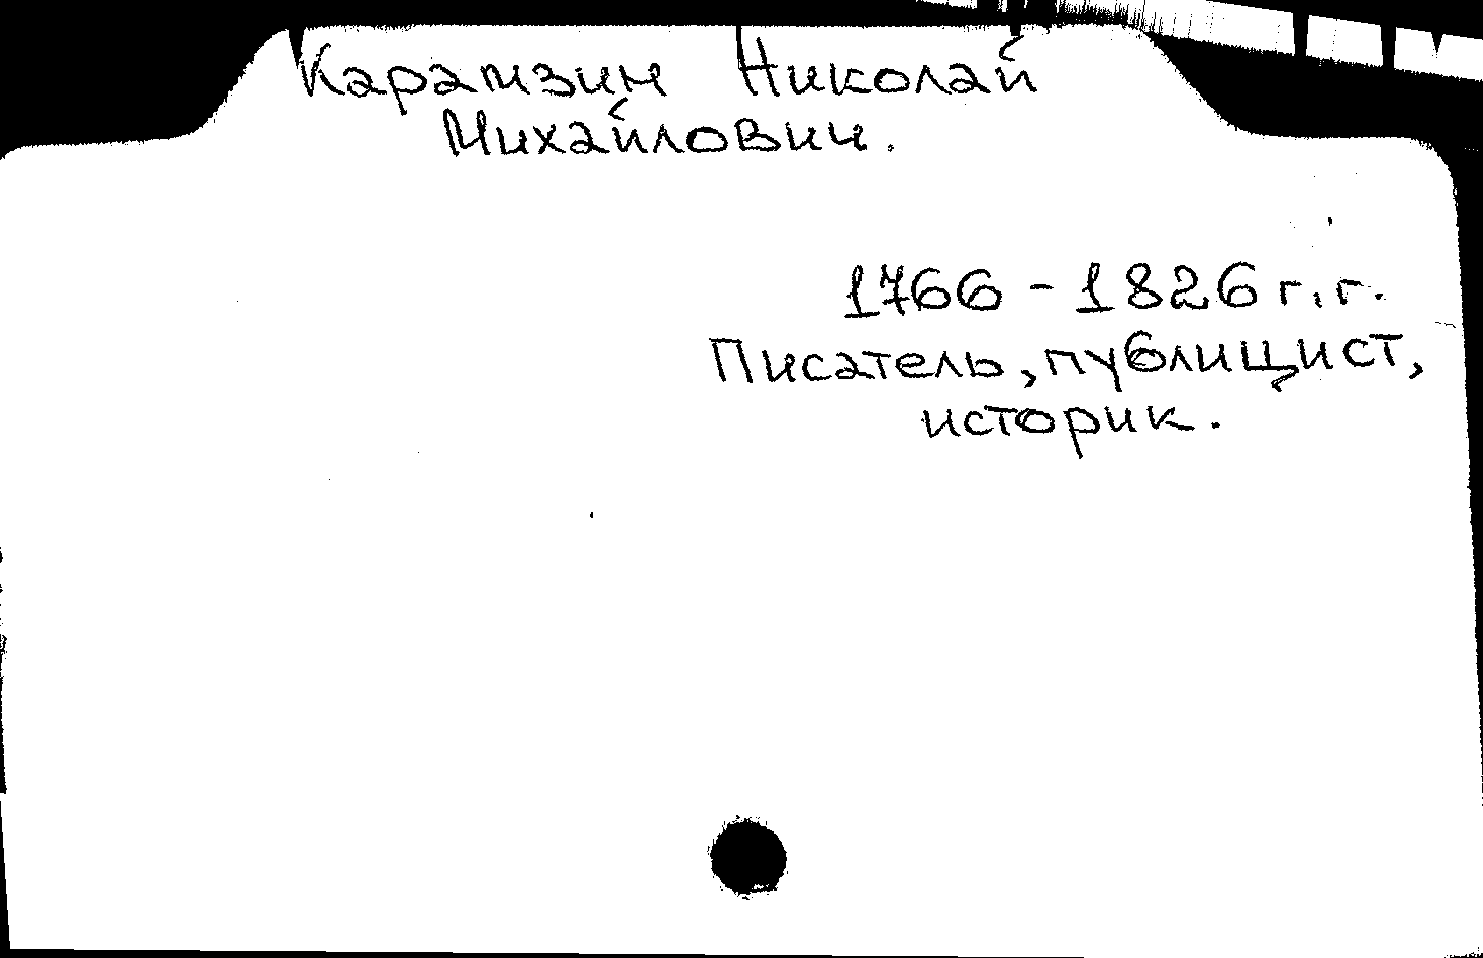 Карамзин Николай
Михайлович.
1766 - 1826 г.г.
Писатель, публицист,
историк.